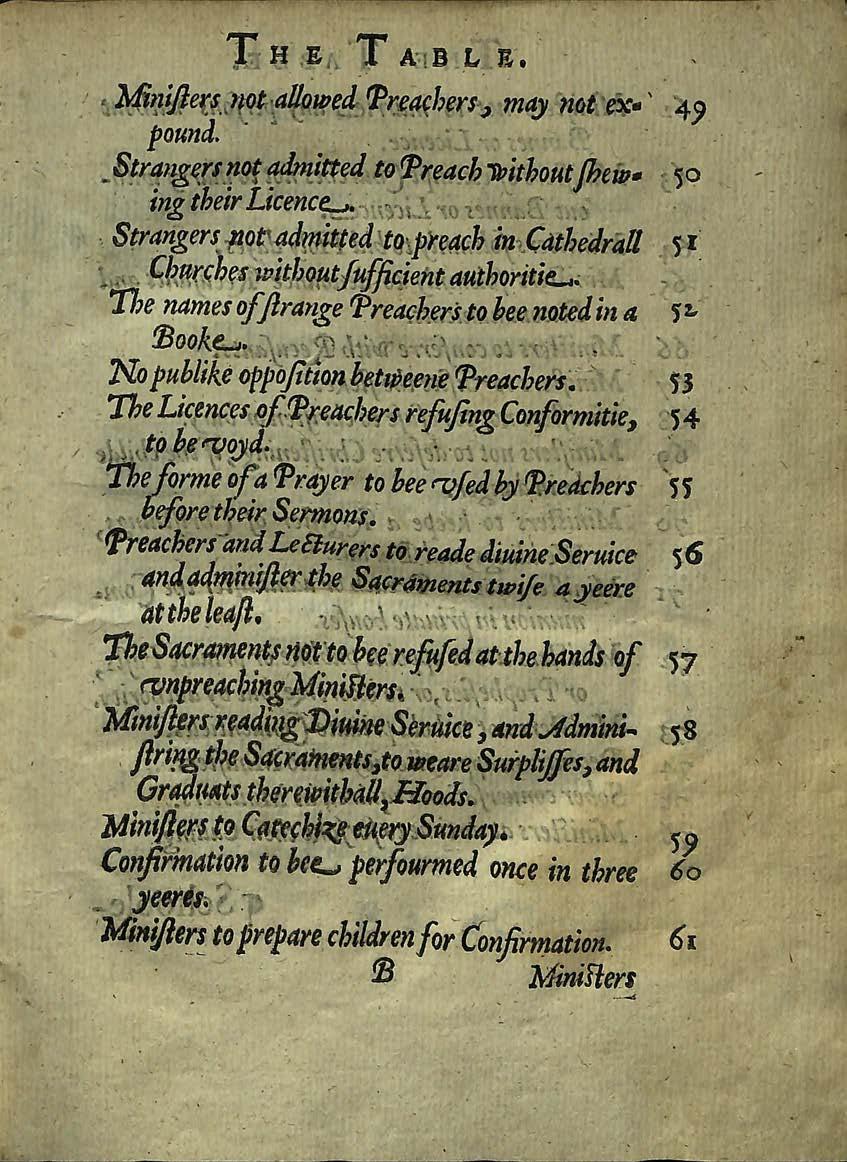 THE TABLE.
Miniſters not allowed Preachers, may not ex- 49
pound.
Strangers not admitted to Preach without ſhew- 50
ing their Licence.
Strangers not admitted to preach in Cathedrall 51
Churches without ſufficient authoritie.
The names of ſtrange Preachers to bee noted in a 52
Booke.
No publike oppoſition betweene Preachers. 53
The Licences of Preachers refuſing Conformitie, 54
to be voyd.
The forme of a Prayer to bee vſed by Preachers 55
before their Sermons.
Preachers and Lecturers to reade diuine Seruice 56
and adminiſter the Sacraments twiſe a yeere
at the leaſt.
The Sacraments not to bee refuſed at the hands of 57
vnpreaching Miniſters.
Miniſters reading Diuine Seruice, and Admini- 58
ſtring the Sacraments, to weare Surpliſſes, and
Graduats therewithall, Hoods.
Miniſters to Catechize euery Sunday. 59
Confirmation to bee perfourmed once in three 60
yeeres.
Miniſters to prepare children for Confirmation. 61
B Miniſters